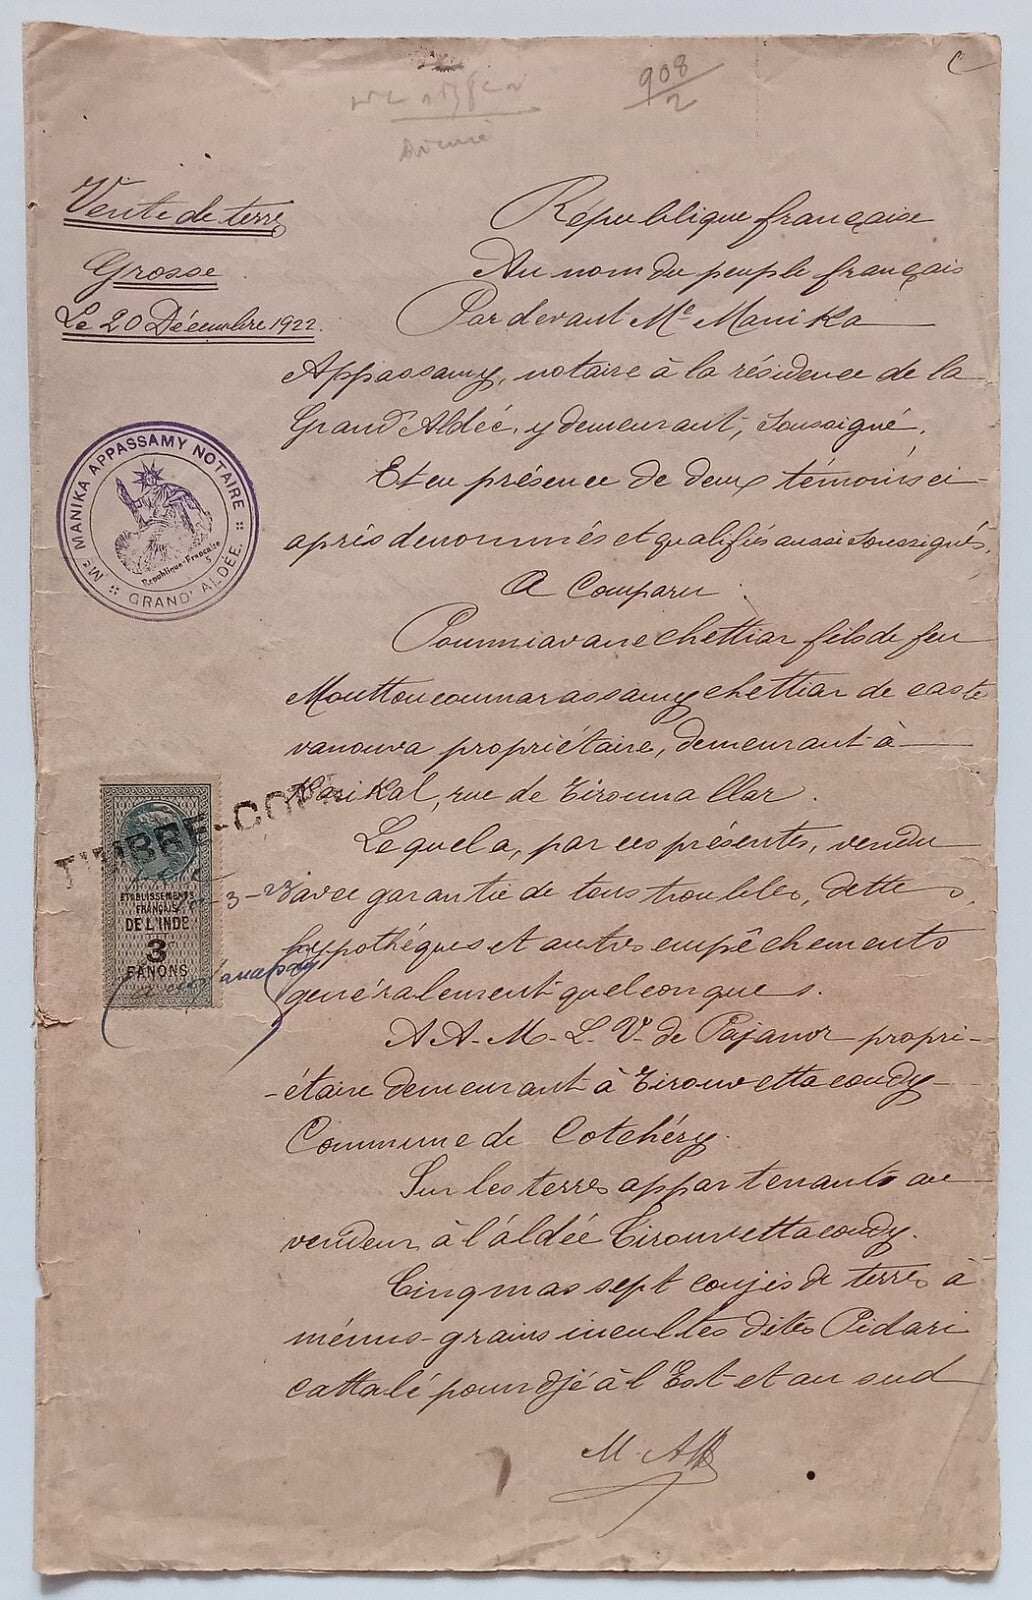 908
2
Vente de terre
Grosse
Le 20 Décembre 1922.
République française
Au nom du peuple français
Par devant Me Manika
Appassamy, notaire à la résidence de la
Grand'Aldée, y demeurant, soussigné.
Et en présence de deux témoins ci-
après dénommés et qualifiés aussi soussignés,
A Comparu
chettiar fils de feu
Mouttoucoumarassamychettiar de caste
vanouva propriétaire, demeurant à
Karikal, rue de Tirounallar.
Lequel a, par ces présentes, vendu
avec garantie de tous troubles, dettes,
hypothéques et autres empêchements
généralement quelconques.
A A. M. L. V. de Pajanor propri-
-étaire demeurant à Tirouvettacoudy
Commune de Cotchéry.
Sur les terres appartenants au
vendeur à l'aldée Tirouvettacoudy.
Cinq mas sept coujis de terres à
ménus-grains incultes dites Pidari
cattalé pourdjé à l'Est et au sud
Me MANIKA APPASSAMY NOTAIRE
GRAND' ALDÉE.
République-Française
TIMBRE-COPIE
ÉTABLISSEMENTS
FRANÇAIS
DE L'INDE
3
FANONS
-3-23
M. App